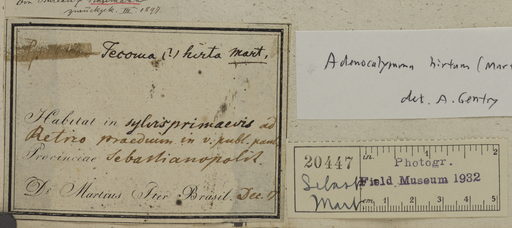 zurückgk. III. 1897
Tecoma (?) hirta Mart.
Habitat in sylvis primaevis ad
Retiro praedium in v. publ.
Provinciae Sebastianopolit.
Dr Martius Iter Brasil. Dec.
Adenocalymma hirtum (Mart
det. A. Gentry
20447
in. 1 2
Photogr.
Field Museum 1932
Sebast
Mart
cm. 1 2 3 4 5